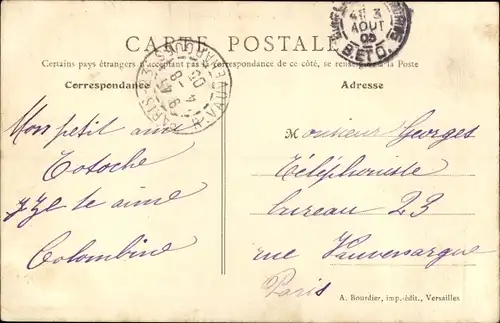 CARTE POSTALE
Certains pays étrangers n'acceptant pas la correspondance de ce côté, se renseigner à la Poste
Correspondance
Adresse
4E 3
AOUT
05
B. ET O.
PARIS-23
R. VAUVENARGUES
4 -8
05
Mon petit ami
Totoche
Je te aime
Colombine
Monsieur Georges
Téléphoniste
bureau 23
rue Vauvenargue
Paris
A. Bourdier, imp.-édit., Versailles